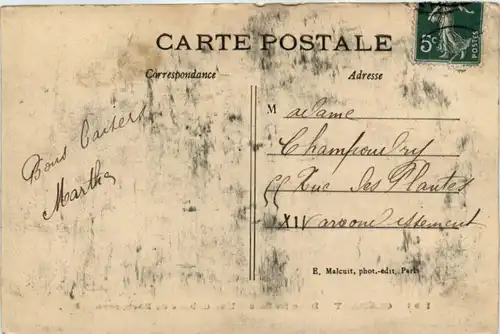 CARTE POSTALE
Correspondance
Adresse
5c
POSTES
Bons baisers
Marthe
Madame
Champoudry
55 Rue des Plantes
XIV arrondissement
E. Malcuit, phot.-édit, Paris